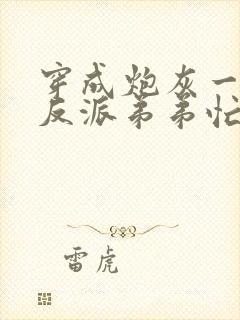 穿成炮灰一
反派弟弟忙
雷虎